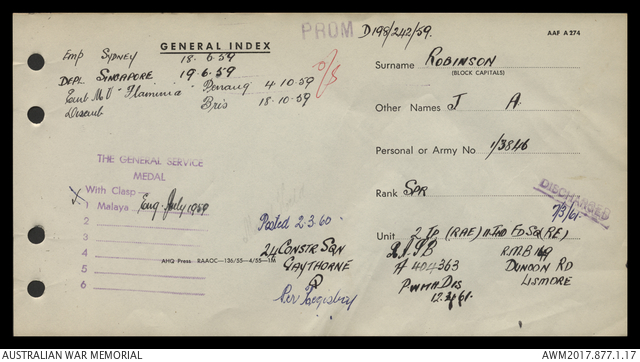 GENERAL INDEX
PROM
D198/242/59.
AAF A 274
Emp SYDNEY 18.6.59
DEPL SINGAPORE 19.6.59
Emb M.V "Flaminia" Penang 4.10.59
Disemb Bris 18.10.59
O/S
Surname ROBINSON
(BLOCK CAPITALS)
Other Names J A.
Personal or Army No 1/3846
Rank SPR
DISCHARGED
7/3/61.
Unit 2 TP (RAE) 11 IND FD SQ (RE)
R.M.B 169
A 404363
DUNOON RD
LISMORE
12.4.61.
THE GENERAL SERVICE
MEDAL
With Clasp
1 Malaya Eng. July 1959
2
3
4
5
6
Posted 2.3.60.
24 CONSTR SQN
GAYTHORNE
AHQ Press RAAOC—126/55—4/55—1M
AUSTRALIAN WAR MEMORIAL
AWM2017.877.1.17